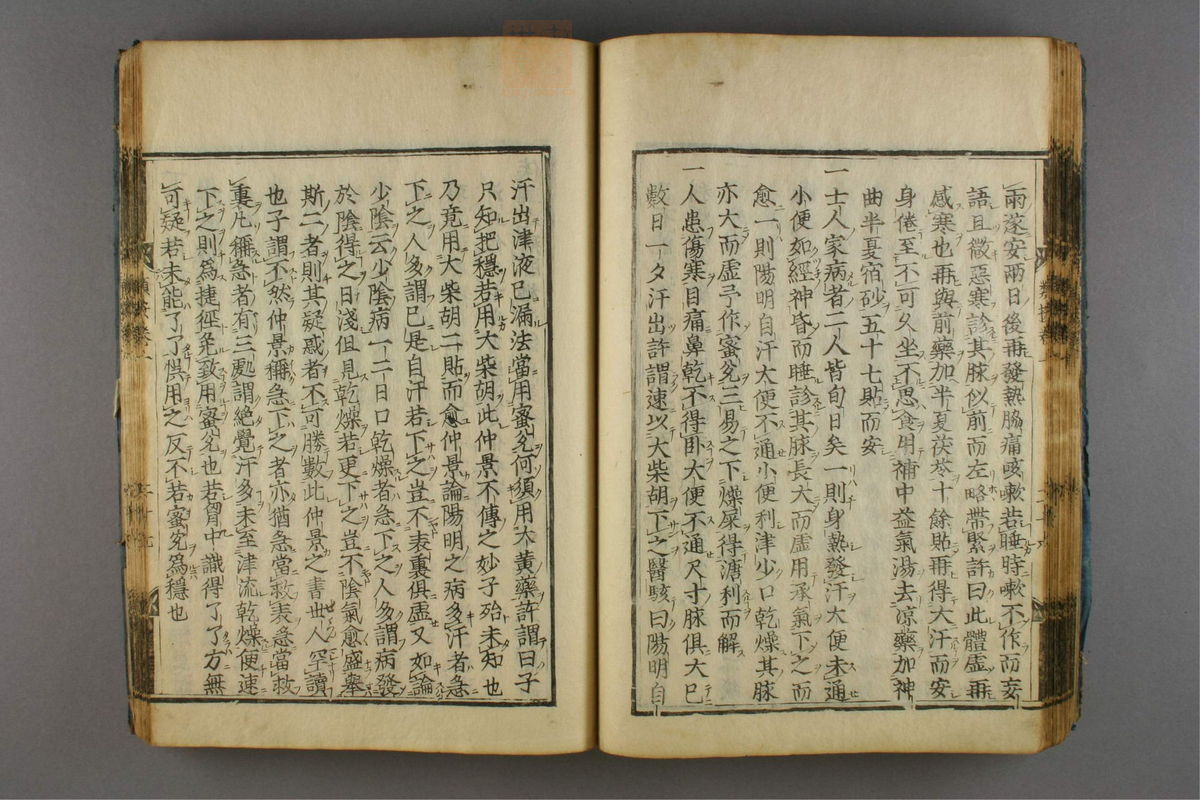 兩遂安兩日後再發熱脇痛咳嗽若睡時嗽不作而妄
語且微惡寒診其脉似前而左略帶緊許曰此體虛再
感寒也再與前藥加半夏茯苓十餘貼再得大汗而安
身倦至不可久坐不思食用補中益氣湯去凉藥加神
曲半夏宿砂五十七貼而安
一士人家病者二人皆旬日矣一則身熱發汗大便未通
小便如經神昏而睡診其脉長大而虛用承氣下之而
愈一則陽明自汗大便不通小便利津少口乾燥其脉
亦大而虛予作蜜兊三易之下燥屎得溏利而解
一人患傷寒目痛鼻乾不得卧大便不通尺寸脉俱大已
數日一夕汗出許謂速以大柴胡下之醫駭曰陽明自
汗出津液已漏法當用蜜兊何須用大黃藥許謂曰子
只知把穩若用大柴胡此仲景不傳之妙子殆未知也
乃竟用大柴胡二貼而愈仲景論陽明之病多汗者急
下之人多謂已是自汗若下之豈不表裏俱虛又如論
少陰云少陰病一二日口乾燥者急下之人多謂病發
於陰得之日淺但見乾燥若更下之豈不陰氣愈盛舉
斯二者則其疑惑者不可勝數此仲景之書世人空讀
也予謂不然仲景稱急下之者亦猶急當救表急當救
裏凡稱急者有三處謂絶覺汗多未至津流乾燥便速
下之則爲捷徑免致用蜜兊也若胷中識得了了方無
可疑若未能了了惧用之反不若蜜兊爲穩也